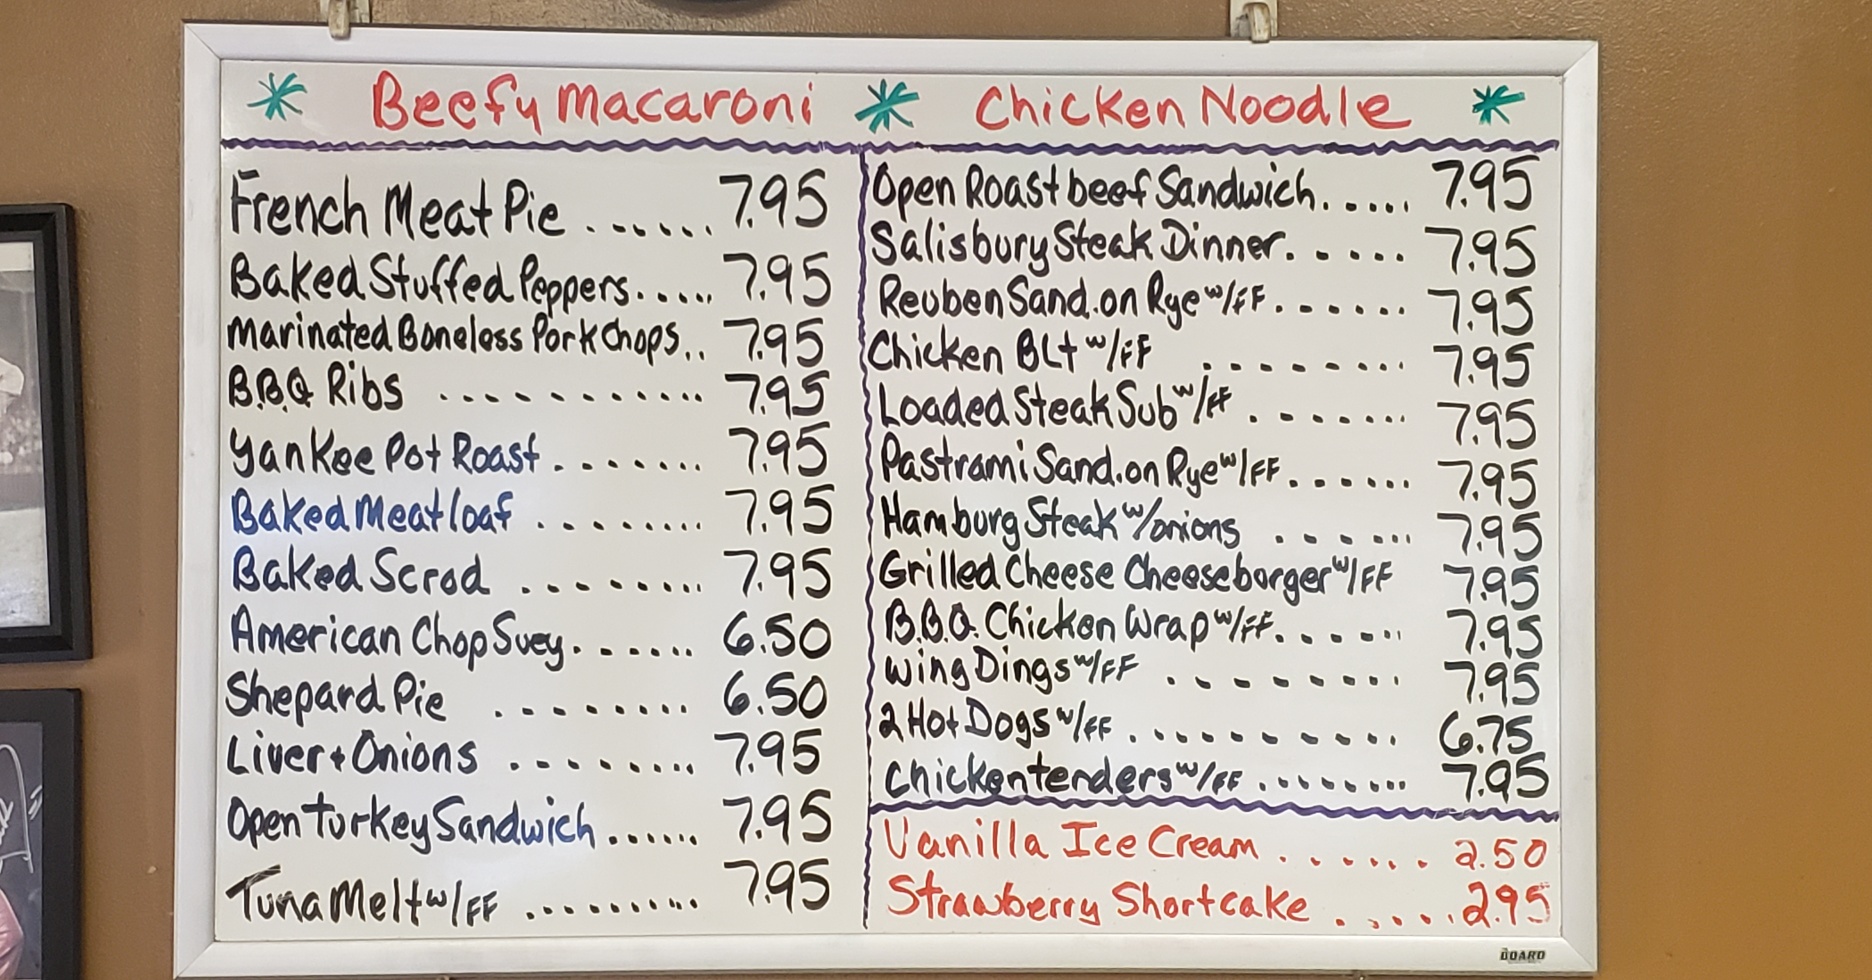 * Beefy Macaroni * Chicken Noodle *
French Meat Pie ...... 7.95
Baked Stuffed Peppers..... 7.95
Marinated Boneless Pork Chops.. 7.95
B.B.Q Ribs ........... 7.95
Yankee Pot Roast....... 7.95
Baked Meatloaf ........ 7.95
Baked Scrod ........ 7.95
American Chop Suey...... 6.50
Shepard Pie ........ 6.50
Liver + Onions ........ 7.95
Open Turkey Sandwich...... 7.95
Tuna Melt w/FF .......... 7.95
Open Roast beef Sandwich..... 7.95
Salisbury Steak Dinner..... 7.95
Reuben Sand. on Rye w/FF...... 7.95
Chicken BLt w/FF ........ 7.95
Loaded Steak Sub w/FF ...... 7.95
Pastrami Sand. on Rye w/FF...... 7.95
Hamburg Steak w/onions ...... 7.95
Grilled Cheese Cheeseborger w/FF 7.95
B.B.Q. Chicken Wrap w/FF...... 7.95
Wing Dings w/FF ........ 7.95
2 Hot Dogs w/FF .......... 6.75
Chicken tenders w/FF ........ 7.95
Vanilla Ice Cream ...... 2.50
Strawberry Shortcake ..... 2.95
BOARD